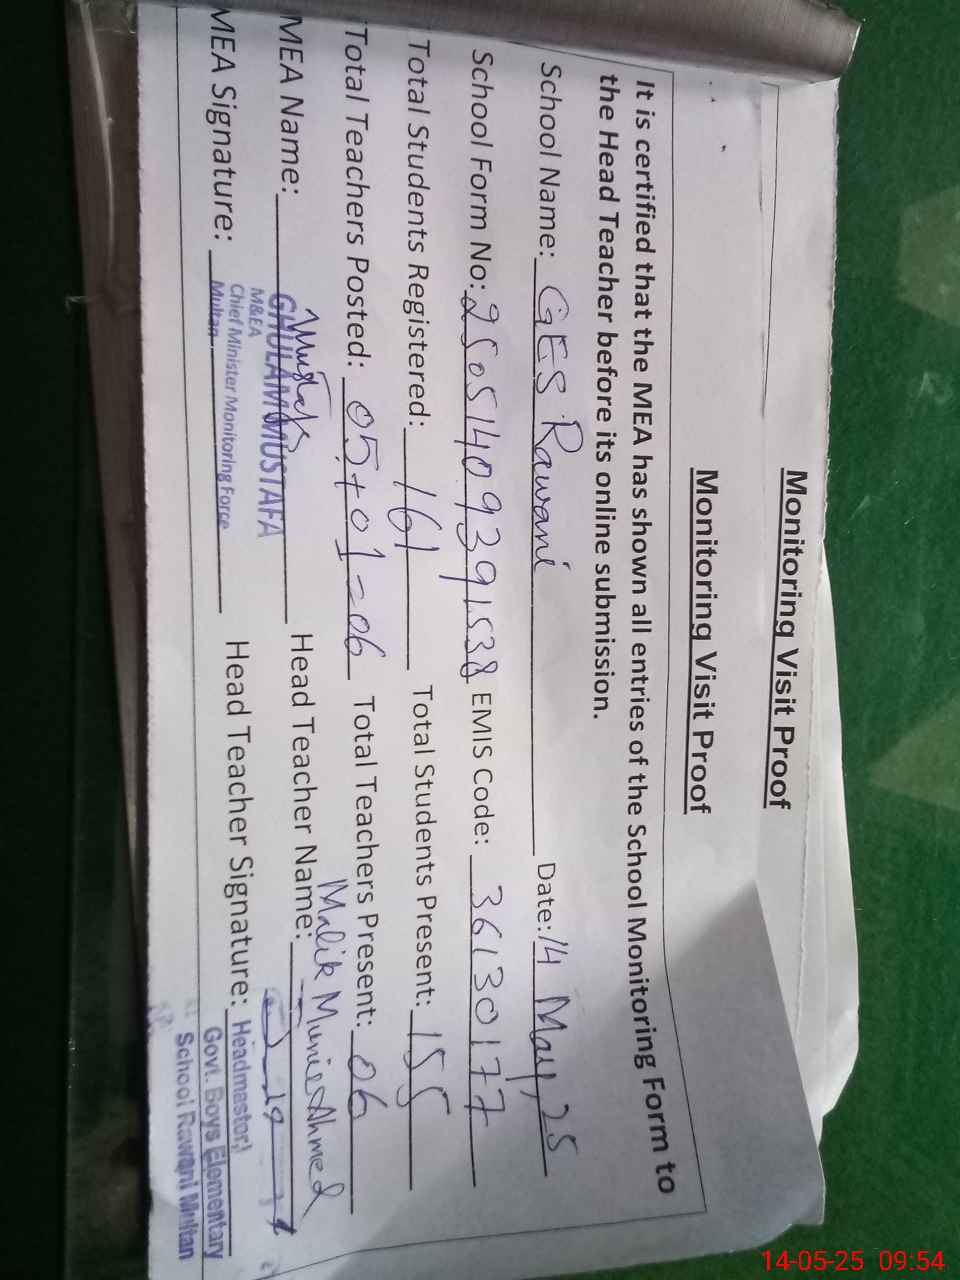 Monitoring Visit Proof
Monitoring Visit Proof
It is certified that the MEA has shown all entries of the School Monitoring Form to
the Head Teacher before its online submission.
School Name: GES Rawani Date: 14 May, 25
School Form No: 25051409391538 EMIS Code: 36130177
Total Students Registered: 161 Total Students Present: 155
Total Teachers Posted: 05+01=06 Total Teachers Present: 06
MEA Name: GHULAM MUSTAFA Head Teacher Name: Malik Munir Ahmed
M&EA
Chief Minister Monitoring Force
Multan
MEA Signature: Head Teacher Signature:
Headmaster
Govt. Boys Elementary
School Rawani Multan
14-05-25 09:54